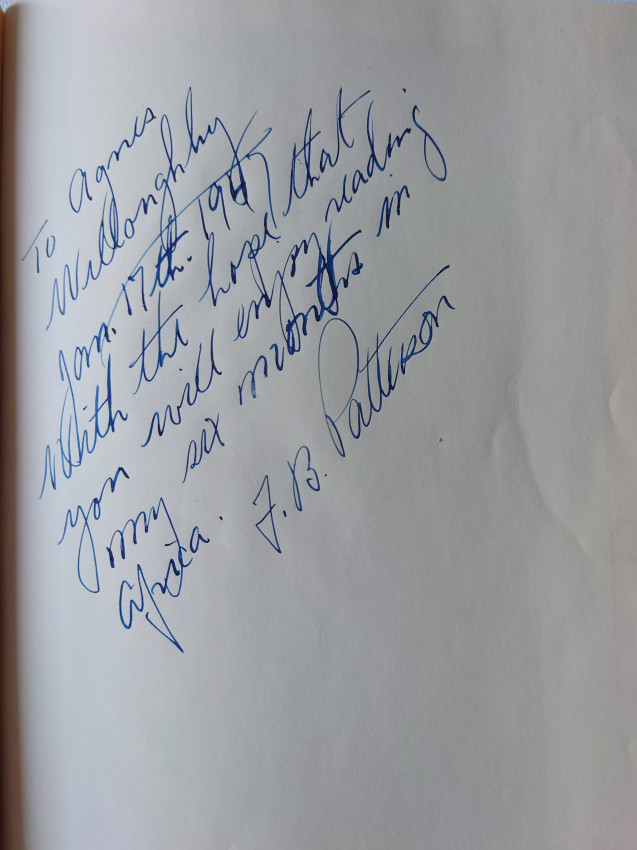 To Agnes
Willoughby
Jan. 17th. 1947
With the hope that
you will enjoy reading
my six months in
Africa.
F. B. Patterson